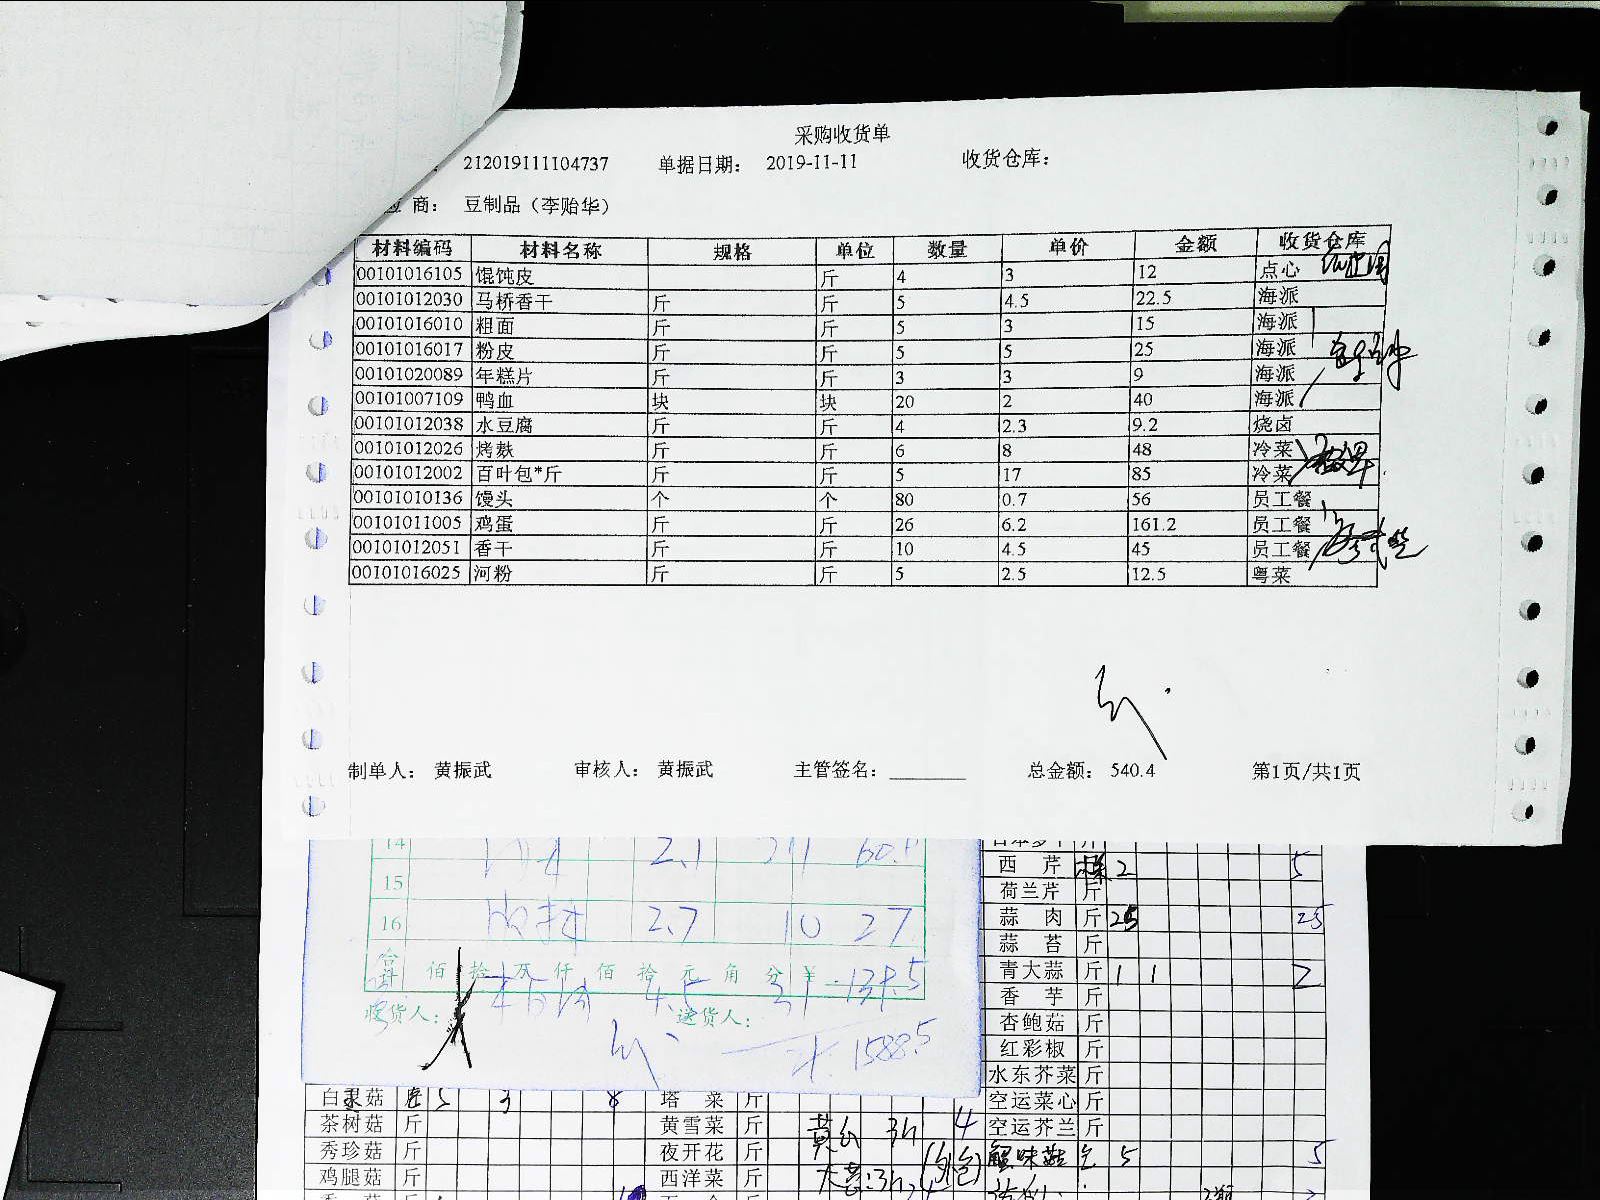 采购收货单
212019111104737 单据日期： 2019-11-11 收货仓库：
商： 豆制品（李贻华）
材料编码 材料名称 规格 单位 数量 单价 金额 收货仓库
00101016105 馄饨皮 斤 4 3 12 点心
00101012030 马桥香干 斤 斤 5 4.5 22.5 海派
00101016010 粗面 斤 斤 5 3 15 海派
00101016017 粉皮 斤 斤 5 5 25 海派
00101020089 年糕片 斤 斤 3 3 9 海派
00101007109 鸭血 块 块 20 2 40 海派
00101012038 水豆腐 斤 斤 4 2.3 9.2 烧卤
00101012026 烤麸 斤 斤 6 8 48 冷菜
00101012002 百叶包*斤 斤 斤 5 17 85 冷菜
00101010136 馒头 个 个 80 0.7 56 员工餐
00101011005 鸡蛋 斤 斤 26 6.2 161.2 员工餐
00101012051 香干 斤 斤 10 4.5 45 员工餐
00101016025 河粉 斤 斤 5 2.5 12.5 粤菜
制单人： 黄振武 审核人： 黄振武 主管签名： 总金额： 540.4 第1页/共1页
14 2.1
15
16 2.7 10 27
合计 佰 拾 万 仟 佰 拾 元 角 分 ¥
4.5
收货人： 送货人：
1588.5
西芹 2 5
荷兰芹 斤
蒜肉 斤 25 25
蒜苔 斤
青大蒜 斤 1 1 2
香芋 斤
杏鲍菇 斤
红彩椒 斤
水东芥菜 斤
空运菜心 斤
空运芥兰 斤
5 5
白灵菇 5 3 8 塔菜 斤
茶树菇 斤 黄雪菜 斤 4
秀珍菇 斤 夜开花 斤
鸡腿菇 斤 西洋菜 斤